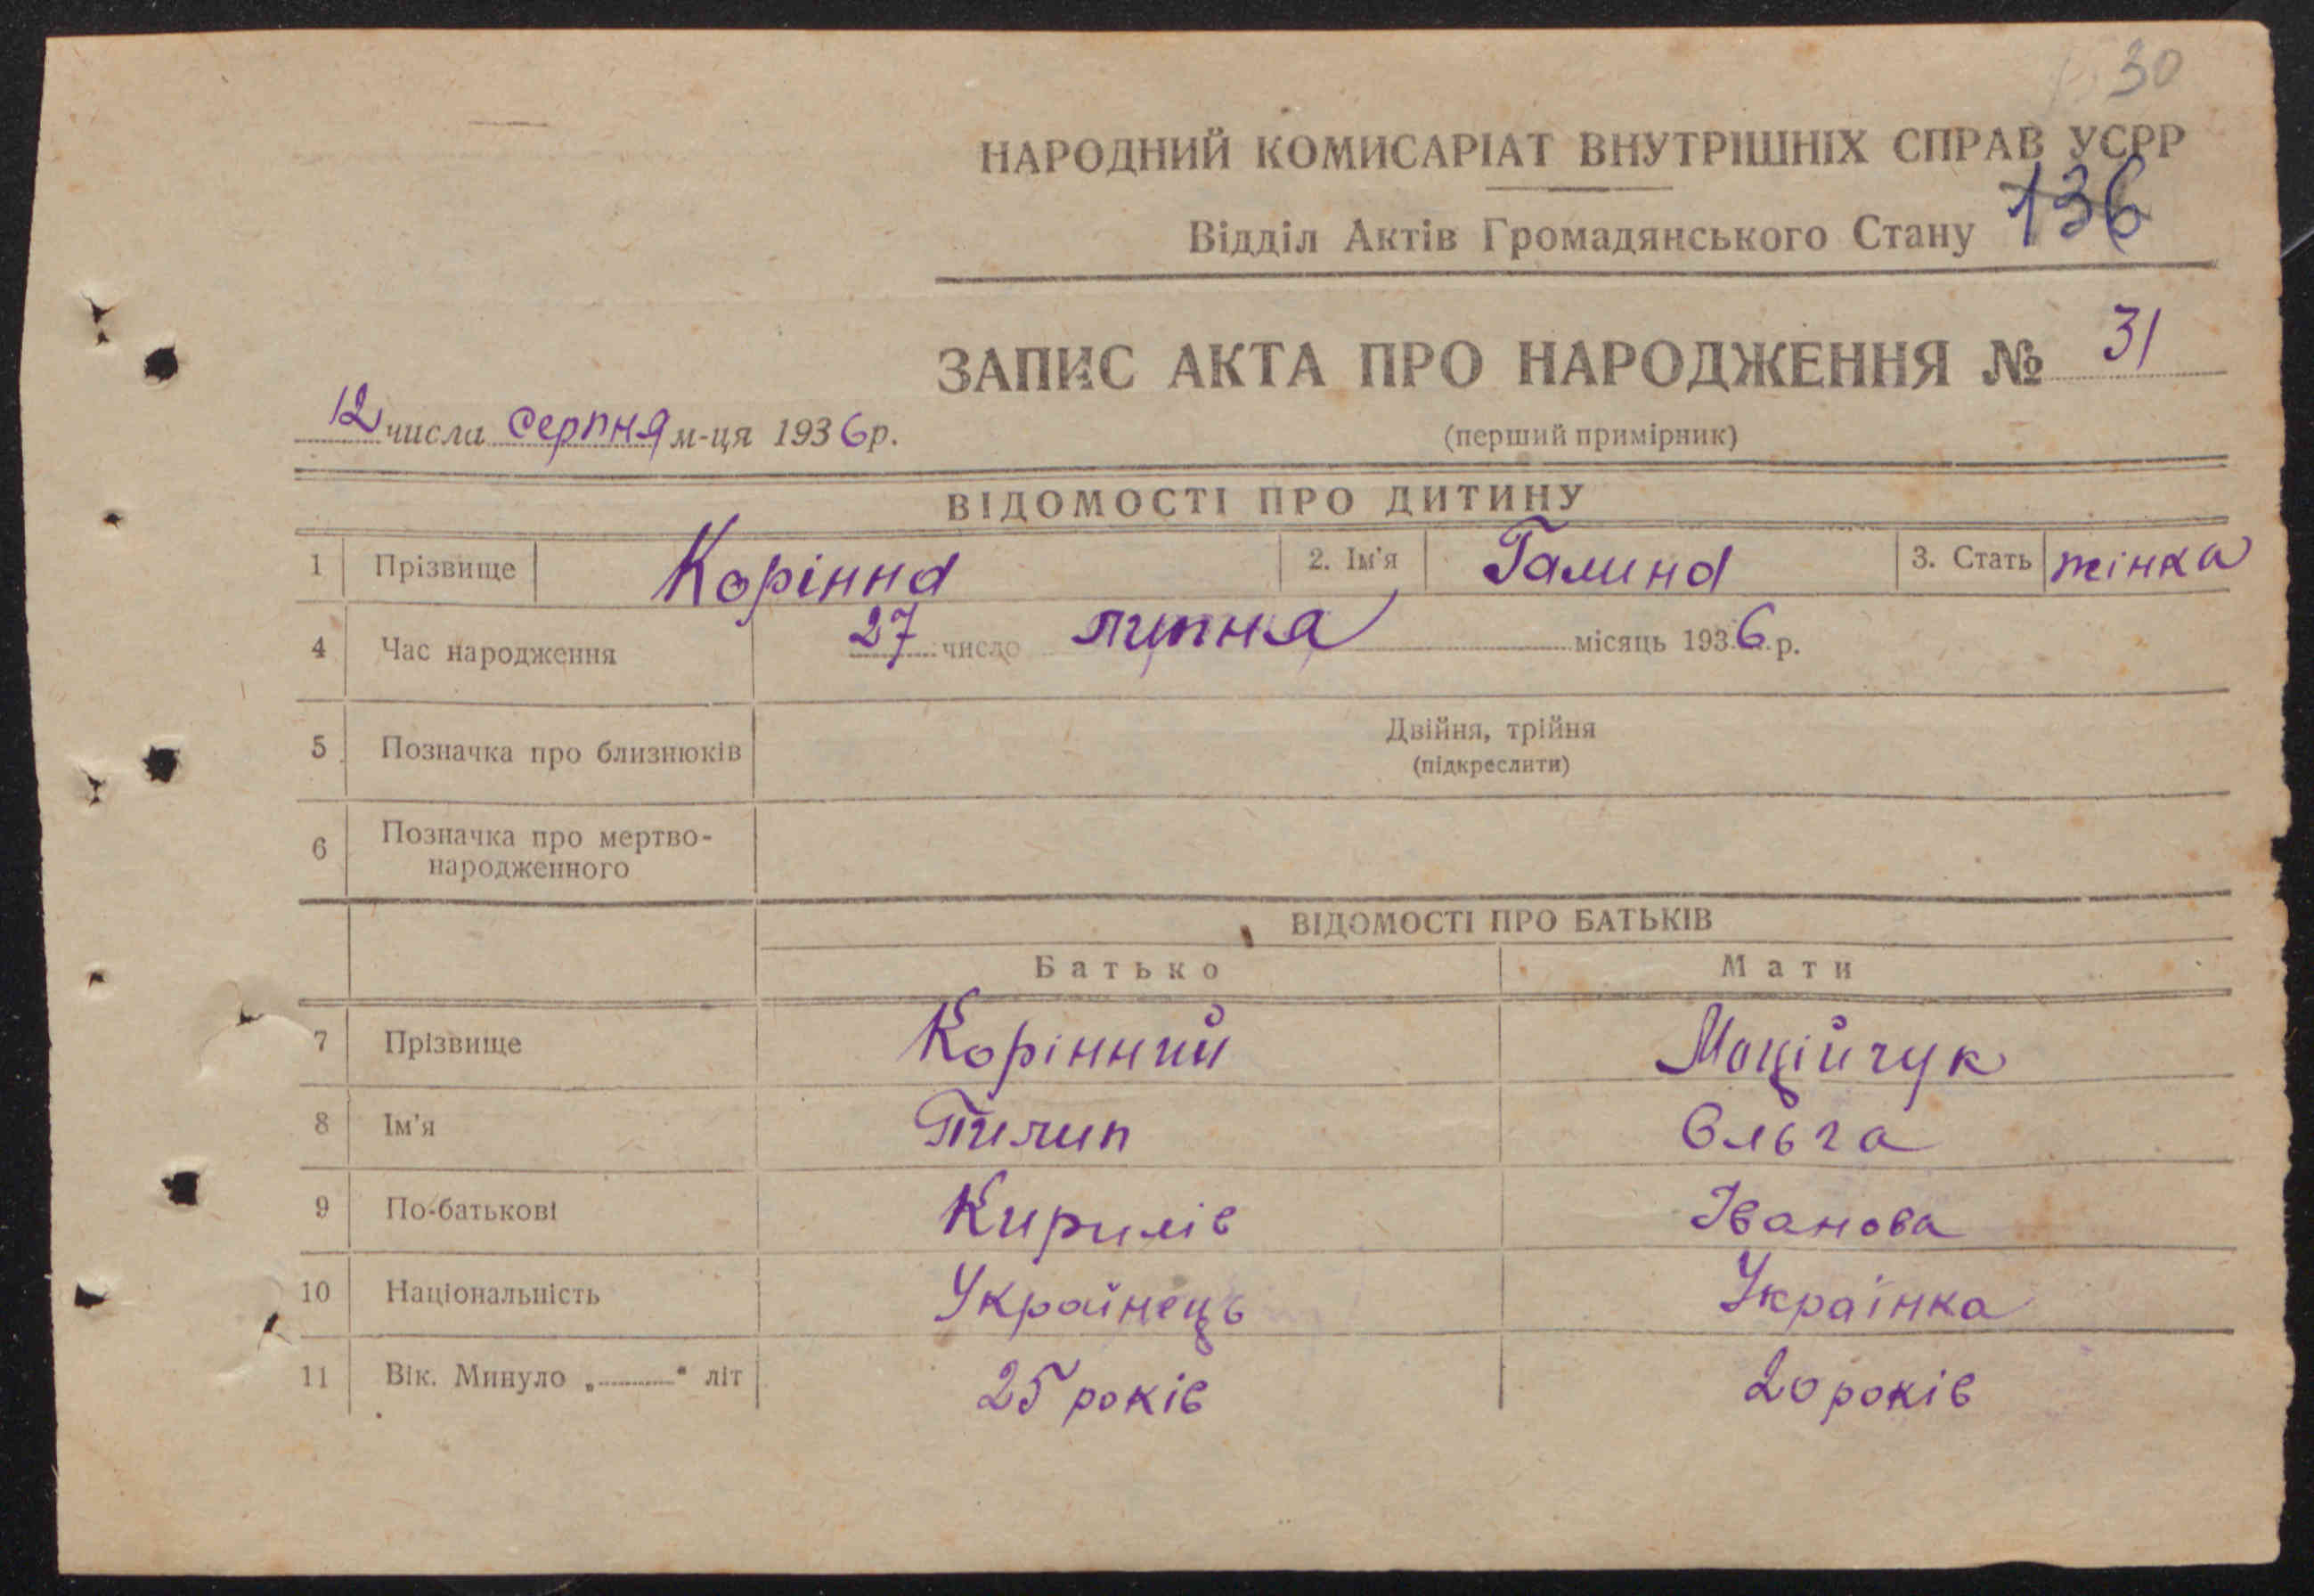 30
НАРОДНИЙ КОМИСАРІАТ ВНУТРІШНІХ СПРАВ УСРР
136
Відділ Актів Громадянського Стану
ЗАПИС АКТА ПРО НАРОДЖЕННЯ № 31
12 числа серпня м-ця 1936 р.
(перший примірник)
ВІДОМОСТІ ПРО ДИТИНУ
1 Прізвище Корінна 2. Ім'я Галина 3. Стать жінка
4 Час народження 27 число липня місяць 1936 р.
5 Позначка про близнюків Двійня, трійня
(підкреслити)
6 Позначка про мертво-
народженного
ВІДОМОСТІ ПРО БАТЬКІВ
Батько Мати
7 Прізвище Корінний Моційчук
8 Ім'я Пилип Ольга
9 По-батькові Кирилів Іванова
10 Національність Українець Українка
11 Вік. Минуло „ " літ 25 років 20 років